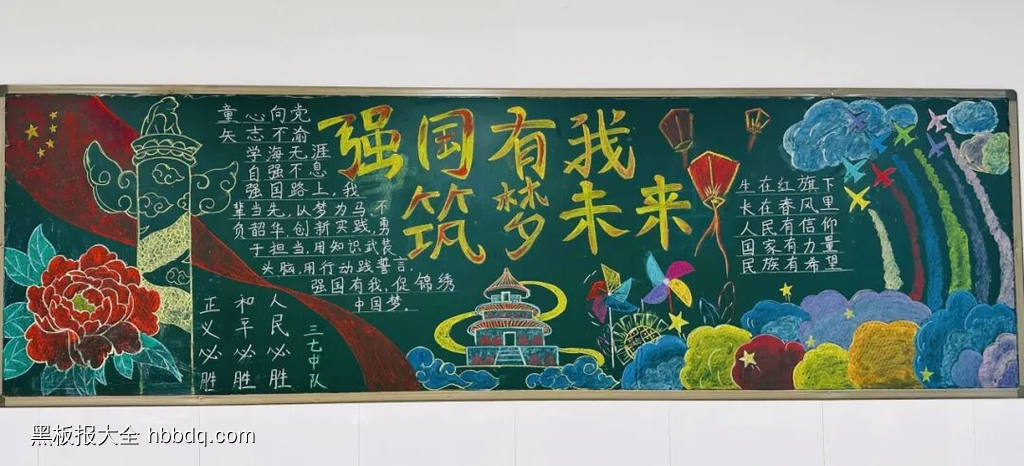 强国有我
筑梦未来
童心向党
矢志不渝
学海无涯
自强不息
强国路上,我
辈当先,以梦力马,不
负韶华,创新实践,勇
于担当,用知识武装
头脑,用行动践誓言.
强国有我,促锦绣
中国梦.
正义必胜
和平必胜
人民必胜
三七中队
生在红旗下
长在春风里
人民有信仰
国家有力量
民族有希望
黑板报大全 hbbdq.com